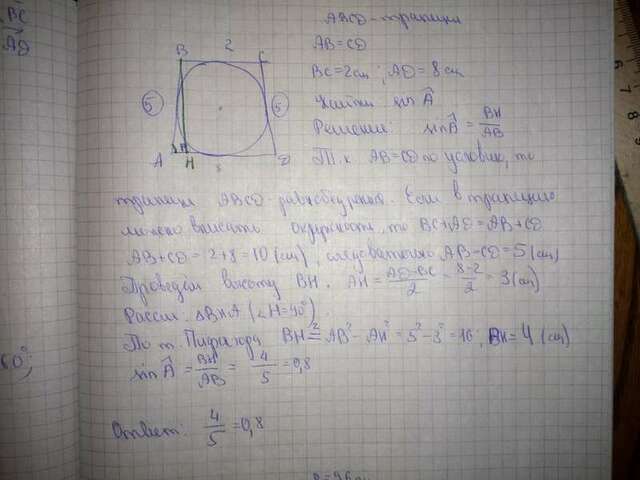 ABCD - трапеция
AB = CD
BC = 2 см; AD = 8 см
Найти sin A
Решение: sin A = BH/AB
Т.к AB = CD по условию, то
трапеция ABCD - равнобедрен. Если в трапецию
можно вписать окружность, то BC + AD = AB + CD
AB + CD = 2 + 8 = 10 (см) следовательно AB = CD = 5 (см)
Проведём высоту BH. AH = AD - BC/2 = 8 - 2/2 = 3 (см)
Рассм. ΔBHA (∠H = 90°)
По т. Пифагора BH² = AB² - AH² = 5² - 3² = 16; BH = 4 (см)
sin A = BH/AB = 4/5 = 0,8
Ответ: 4/5 = 0,8
A
B
C
D
H
5
2
5
BC
AB
60°,
6
7
8
9